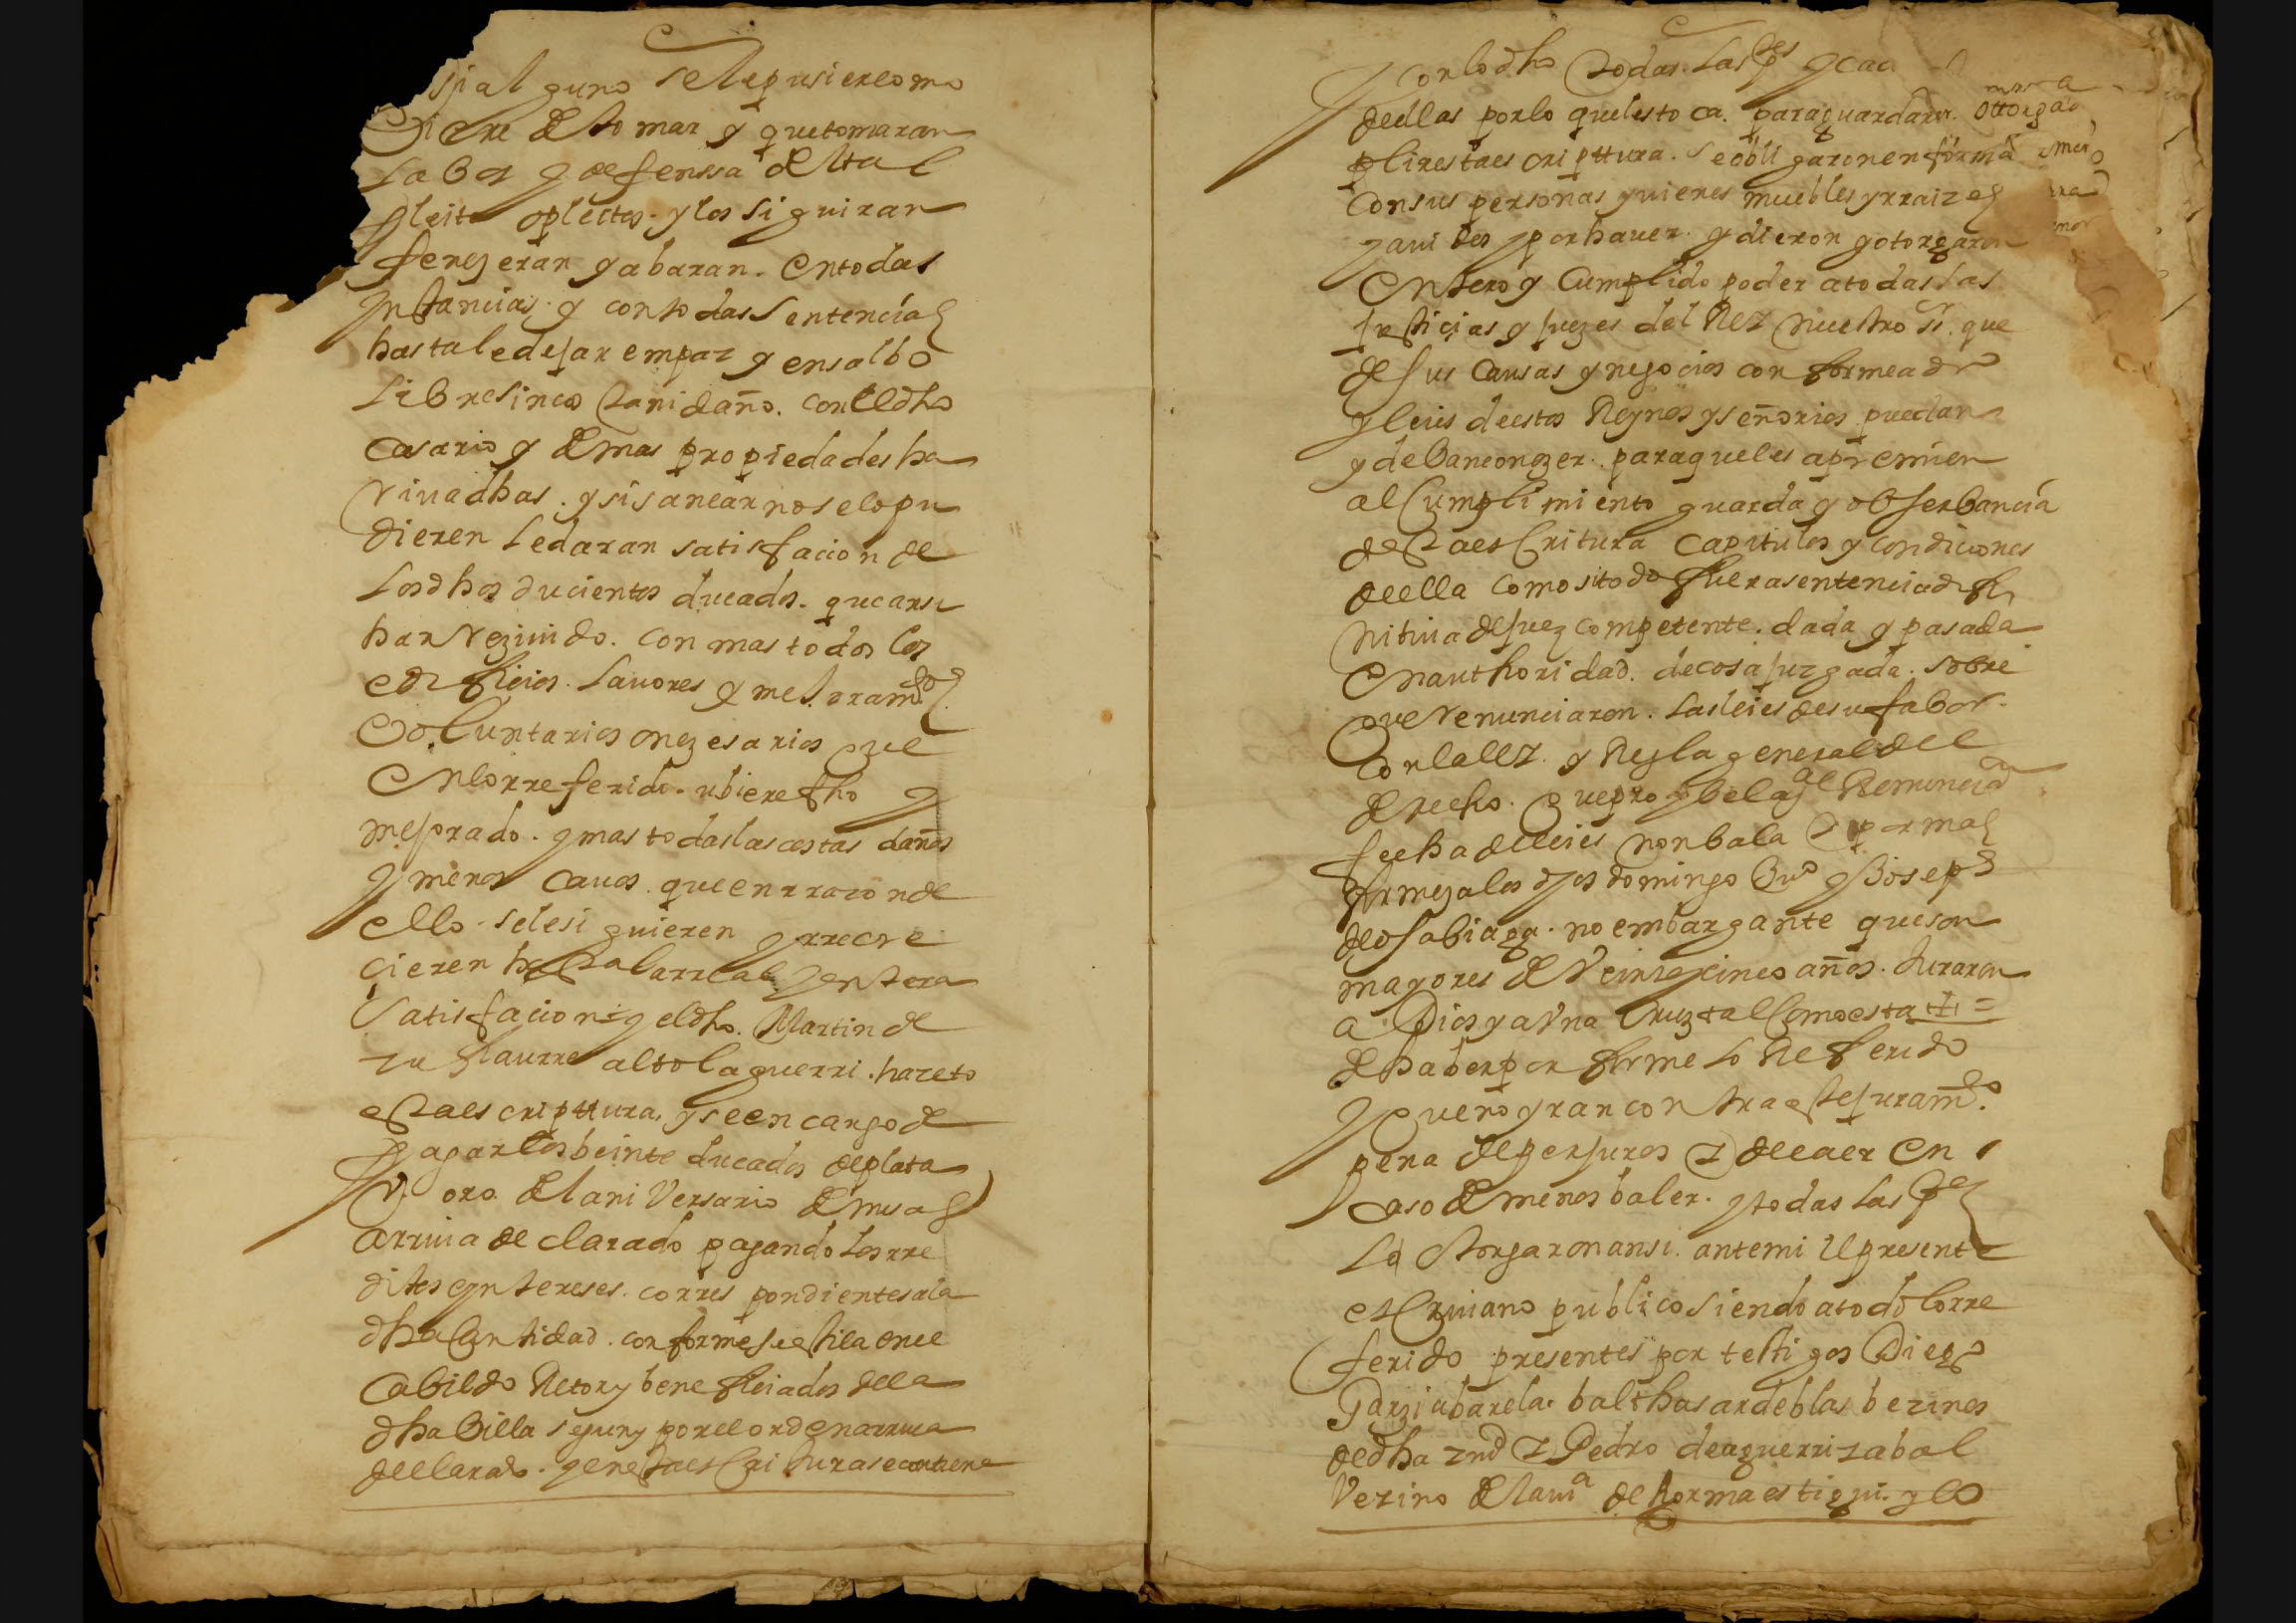 si alguno se le pusiere o mo
viere de tomar y que tomaran
la boz y defenssa del tal
pleito o pleitos y los siguiran
fenezeran y acabaran. en todas
ynstancias y con todas sentencias
hasta le dejar em paz y en salbo
libre sin costa ni daño. con el dho
casario y demas propiedades ha
rriua dhas. y si sanear no se lo pu
dieren le daran satisfacion de
los dhos ducientos ducados. que
han rreziuido. con mas todos los
edifficios. lauores y mejoramtos
voluntarios o nezesarios que
en lo rreferido. ubiere fho y
mejorado. y mas todas las costas daños
y menos cauos que en rrazon de
ello se le siguieren y rrecre
cieren hasta la rreal y entera
satisfacion = y el dho. Martin de
altolaguerri. hazeto
esta escripttura. y se encargo de
pagar los beinte ducados de plata
u oro. del aniversario de misas
arriua declarado pagando los rre
ditos e yntereses. correspondientes a la
dha cantidad. conforme se estila en el
Cabildo Retor y beneficiados de la
dha billa segun y por el orden arriua
declarado. y en esta escritura se contiene
con lo dho todas las ptes y cada
de ellas por lo que les toca. para guardar
plir esta escripttura. se obligaron en forma
con sus personas y uienes muebles y rraizes
auidos y por hauer. y dieron y otorgaron
entero y cumplido poder a todas las
justicias y juezes del Rey nuestro sr. que
de sus causas y negocios conforme a dro
y leies de estos Reynos y señorios puedan
y deban conozer. para que les apremien
al cumplimiento guarda y obserbancia
de esta escritura capitulos y condiciones
de ella como si todo fuera sentencia defi
nitiua de juez competente. dada y pasada
en authoridad. de cosa juzgada. sobre
que renunciaron. las leies de su fabor.
con la ley. y Regla general del
derecho. que prohibe la gl Renunciaon
fecha de leies non bala
domingo y Josephe
de osabiaga. no embargante que son
mayores de veinte y cinco años. Juraron
a Dios y a una Cruz tal como esta + =
de haber por firme lo Referido
y que no yran contra este juramto.
pena de perjuros y de caer en
caso de menos baler. y todas las ptes
lo otorgaron ansi. ante mi el presente
escriuano publico siendo a todo lo rre
ferido presentes por testigos Diego
balthasar de blas bezinos
de dha y Pedro de aguerrizabal
vezino de la uia de hormaestigui. y lo